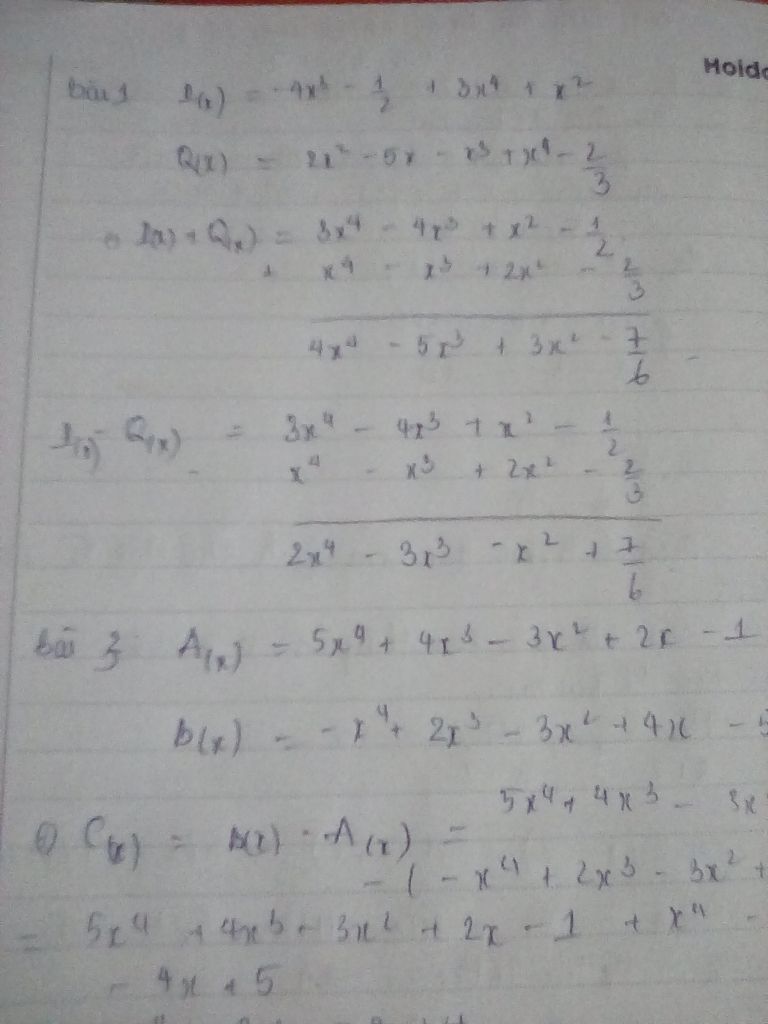 Hoido
Bài 1 P(x) = -4x³ - 1/2 + 3x⁴ + x²
Q(x) = 2x² - 5x - x³ + x⁴ - 2/3
P(x) + Q(x) = 3x⁴ - 4x³ + x² - 1/2
+ x⁴ - x³ + 2x² - 2/3
4x⁴ - 5x³ + 3x² - 7/6
P(x) - Q(x) = 3x⁴ - 4x³ + x² - 1/2
- x⁴ - x³ + 2x² - 2/3
2x⁴ - 3x³ - x² + 7/6
Bài 3 A(x) = 5x⁴ + 4x³ - 3x² + 2x - 1
B(x) = -x⁴ + 2x³ - 3x² + 4x - 5
C(x) = B(x) - A(x) = 5x⁴ + 4x³ - 3x
- ( - x⁴ + 2x³ - 3x² +
= 5x⁴ + 4x³ - 3x² + 2x - 1 + x⁴ -
- 4x + 5